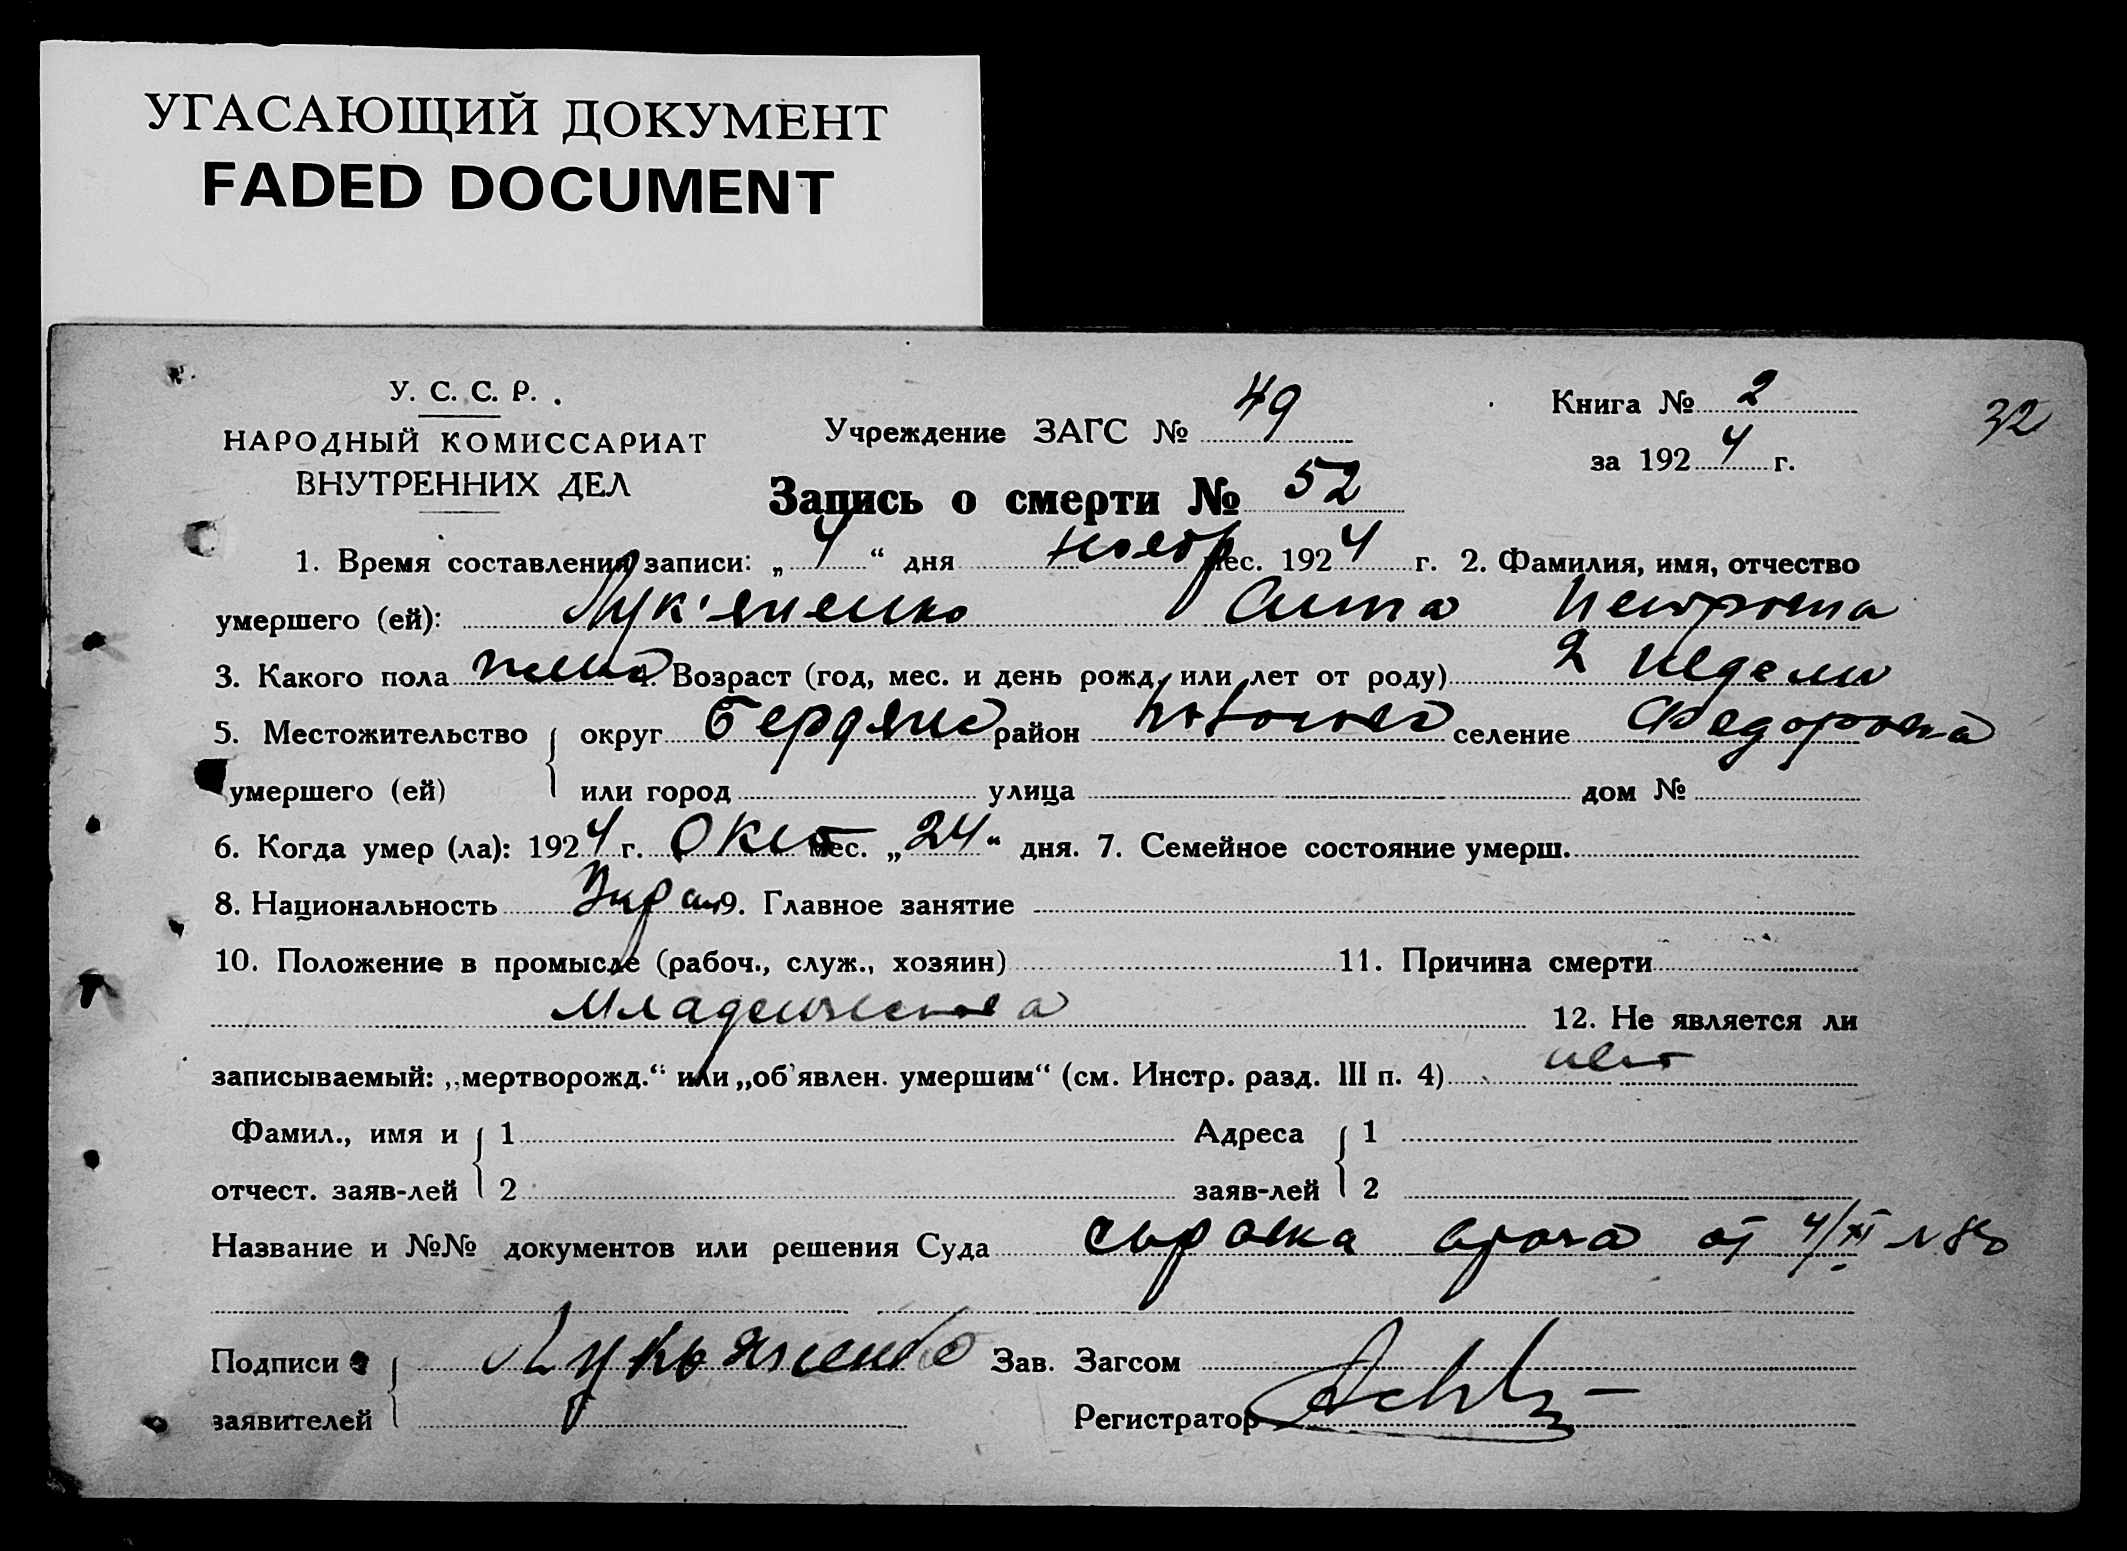 УГАСАЮЩИЙ ДОКУМЕНТ
FADED DOCUMENT
У. С. С. Р.
НАРОДНЫЙ КОМИССАРИАТ
ВНУТРЕННИХ ДЕЛ
Учреждение ЗАГС № 49
Книга № 2
за 1924 г.
32
Запись о смерти № 52
1. Время составления записи: „4“ дня ноябр мес. 1924 г. 2. Фамилия, имя, отчество
умершего (ей): Лук'яненко Анна Петровна
3. Какого пола 4. Возраст (год, мес. и день рожд. или лет от роду) 2 недели
5. Местожительство округ Бердянс район селение Федоровка
умершего (ей) или город улица дом №
6. Когда умер (ла): 1924 г. Окт мес. „24“ дня. 7. Семейное состояние умерш.
8. Национальность Украин 9. Главное занятие
10. Положение в промысле (рабоч., служ., хозяин) 11. Причина смерти
Младенческая 12. Не является ли
записываемый: „мертворожд.“ или „об'явлен. умершим“ (см. Инстр. разд. III п. 4) нет
Фамил., имя и 1 Адреса 1
отчест. заяв-лей 2 заяв-лей 2
Название и №№ документов или решения Суда врача от 4/XI №
Подписи Лукьяненко Зав. Загсом
заявителей Регистратор